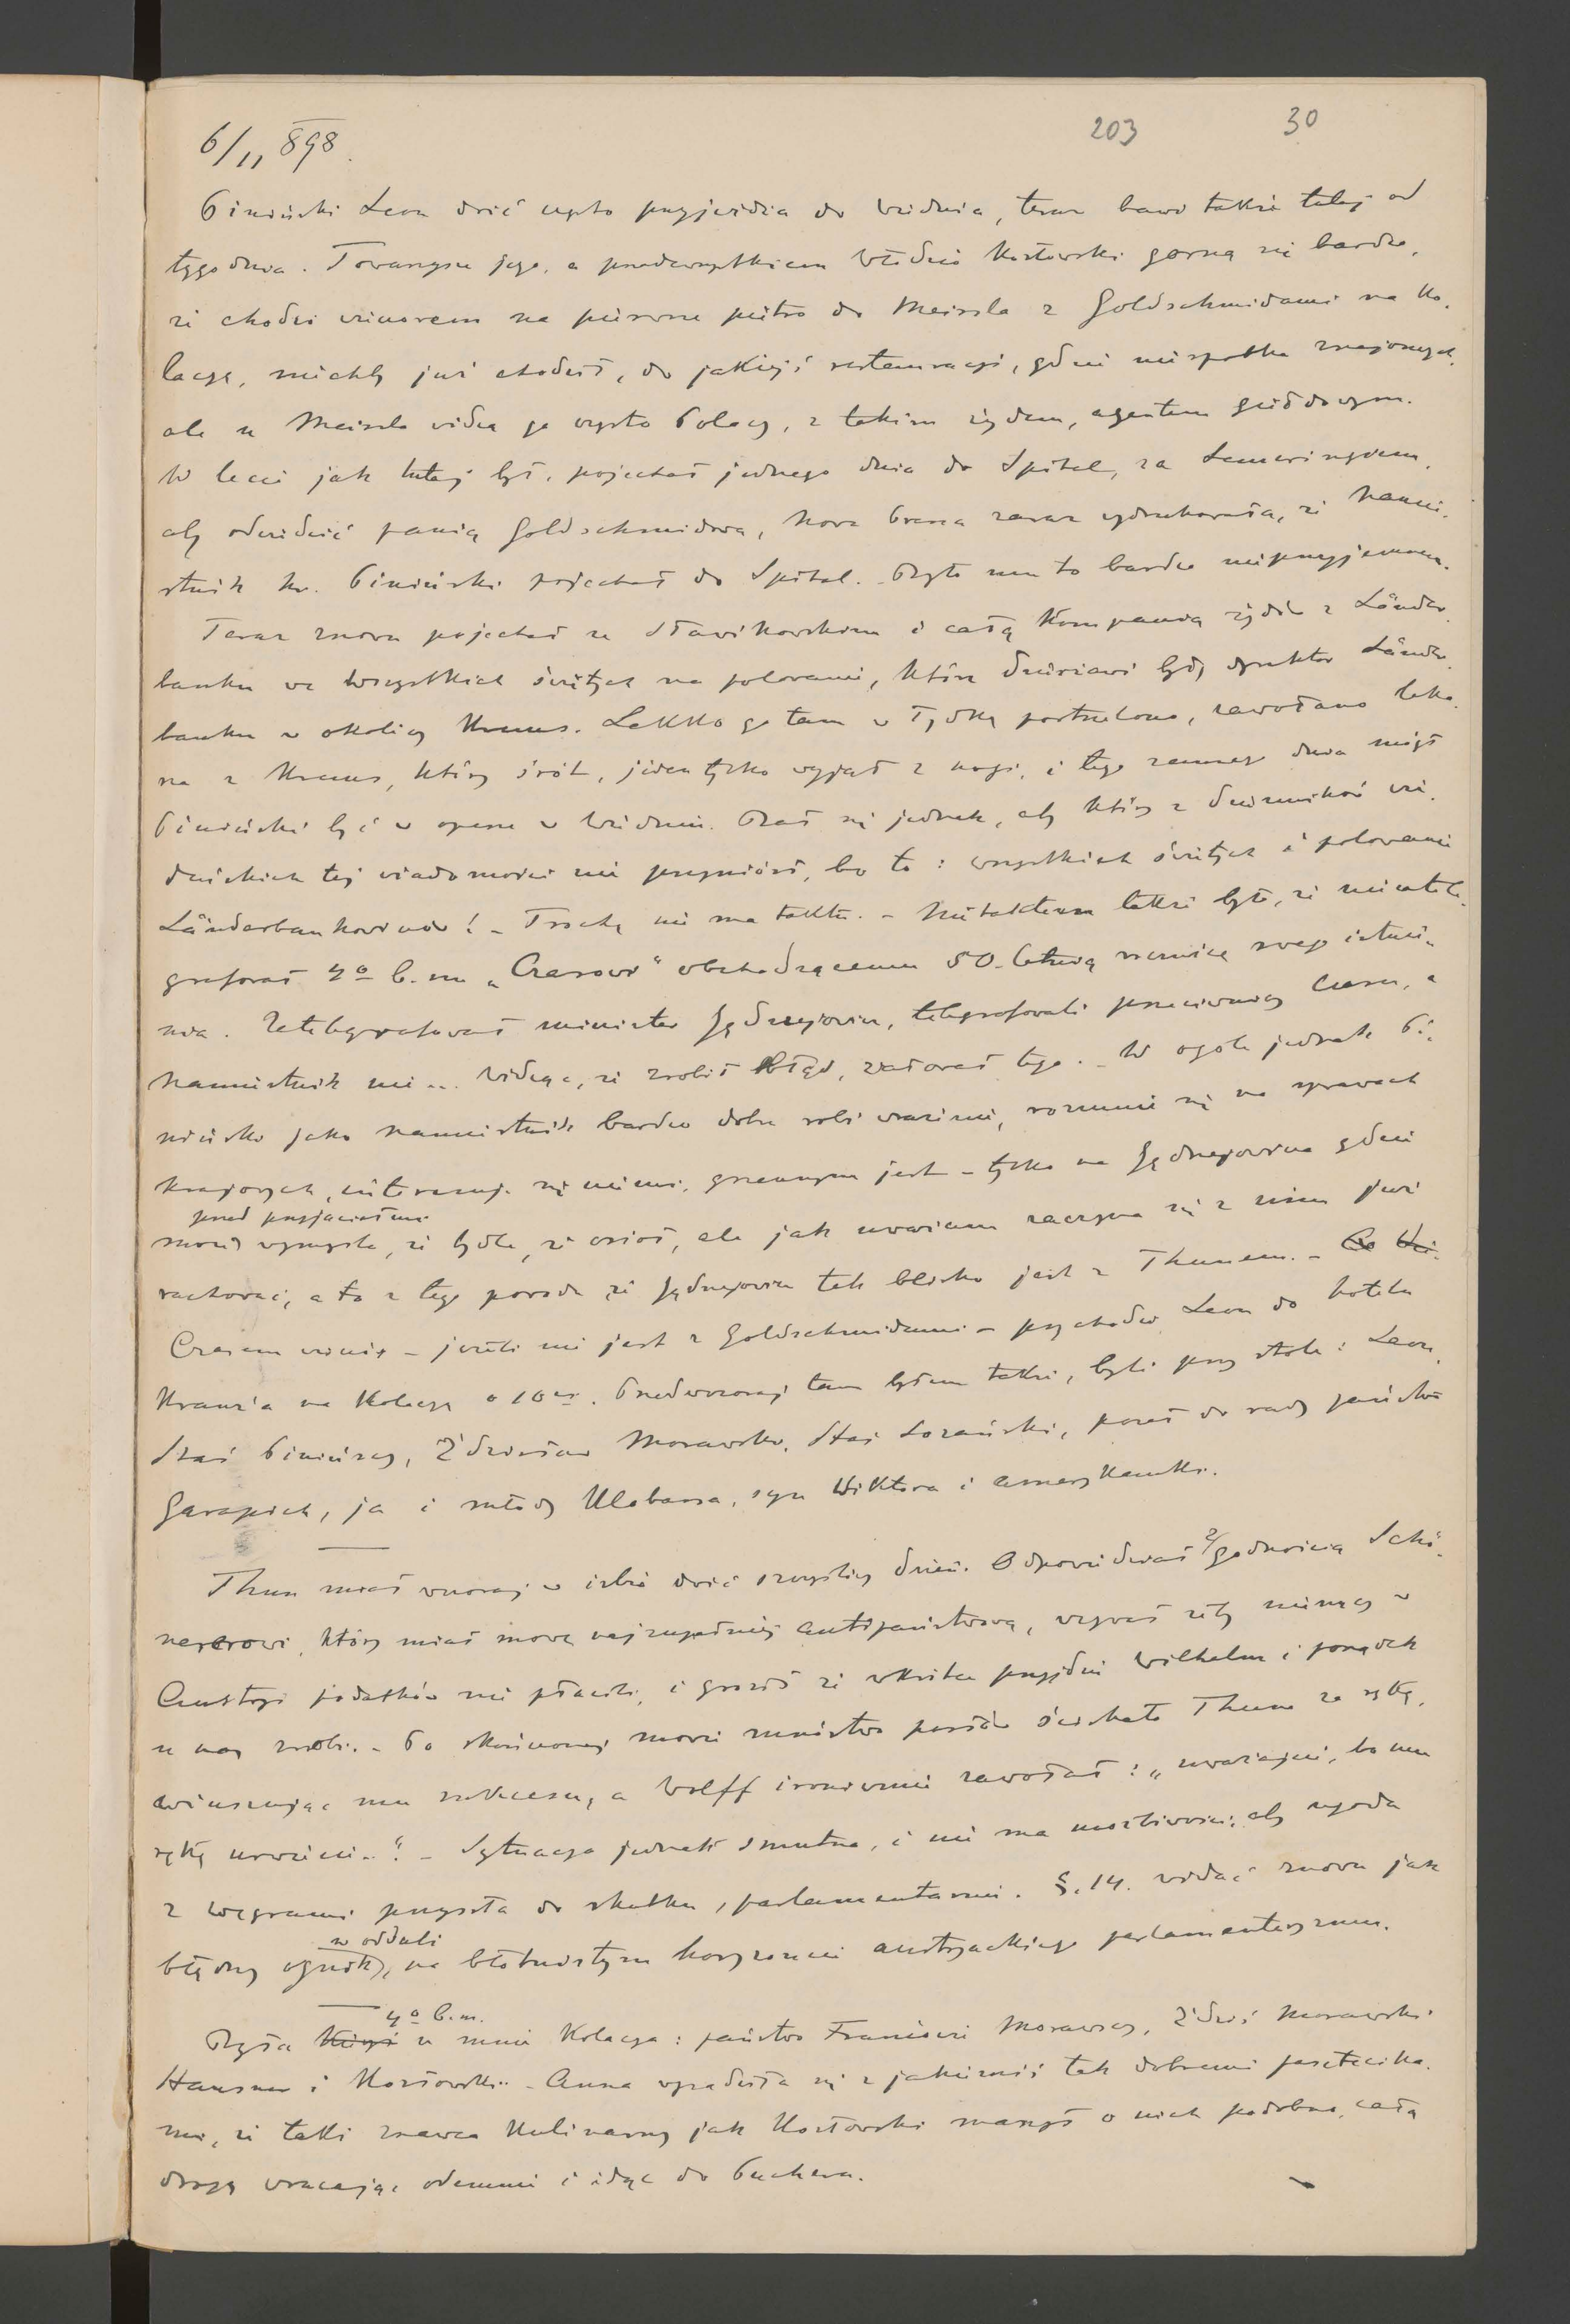 6/11 898.
203 30
Piniński Leon dość często przyjeżdża do Wiednia, teraz bawi także tutaj od
tygodnia. Towarzysze jego, a przedewszystkiem Włodzio Kozłowski gorszą się bardzo,
że chodzi wieczorem na pierwsze piętro do Meissla z Goldschmidami na ko-
lacyę, niechby już chodził, do jakiejś restauracyi, gdzie nie spotka znajomych,
ale u Meissla widzą go często Polacy, z takim żydem, agentem giełdowym.
W lecie jak tutaj był, pojechał jednego dnia do Spital, za Semeringiem,
aby odwiedzić panią Goldschmidową, Nowa Presa zaraz wydrukowała, że Namie-
stnik hr. Piniński pojechał do Spital. Było mu to bardzo nieprzyjemnem.
Teraz znowu pojechał ze Sławikowskim i całą kompanią żydów z Länder-
banku we Wszystkich świętych na polowanie, które dzierżawi były dyrektor Länder-
banku w okolicy Krems. Lekko go tam w łydkę postrzelono, zawołano leka-
rza z Krems, który śrót, jeden tylko wyjął z nogi, i tego samego dnia mógł
Piniński być w operze w Wiedniu. Bał się jednak, aby który z dzienników wie-
deńskich tej wiadomości nie przyniósł, bo to: wszystkich świętych i polowanie
Länderbankowców! - Trochę nie ma taktu. - Nietaktem także było, że nie tele-
grafował 4º b.m. „Czasowi" obchodzącemu 50-letnią rocznicę swego istnie-
nia. Zatelegrafował minister Jędrzejowicz, telegrafowali przeciwnicy Czasu, a
Namiestnik nie... Widząc, że zrobił błąd, żałował tego. - W ogóle jednak Pi-
niński jako namiestnik bardzo dobre robi wrażenie, rozumie się na sprawach
krajowych, interesuje się niemi, grzecznym jest - tylko na Jędrzejowicza gdzie
przed przyjaciółmi
może wymyśla, że bydle, że osioł, ale jak uważam zaczyna się z nim już
rachować, a to z tego powodu że Jędrzejowicz tak blisko jest z Thunem. -
Czasem wieczór - jeżeli nie jest z Goldschmidami - przychodzi Leon do hotelu
Kranz'a na kolacyę o 10ej. Przedwczoraj tam byłem także, byli przy stole: Leon,
Staś Pinińscy, Zdzisław Morawski, Staś Łozański, poseł do rady państwa
Garapich, ja i młody Klobassa, syn Wiktora i amerykanki.
Thun miał wczoraj w izbie dość szczęśliwy dzień. Odpowiedział z godnością Schö-
nererowi, który miał mowę najzupełniej antipaństwową, wzywał żeby niemcy w
Austryi podatków nie płacili, i groził że wkrótce przyjdzie Wilhelm i porządek
u nas zrobi. - Po skończonej mowie mnóstwo posłów ściskało Thuna za rękę,
winszując mu sukcesu, a Wolff ironicznie zawołał: „uważajcie, bo mu
rękę urwiecie.." - Sytuacya jednak smutna, i nie ma możliwości, aby ugoda
z węgrami przyszła do skutku, parlamentarnie. §. 14. widać znowu jak
w oddali
błędny ognik, na błotnistym horyzoncie austryackiego parlamentaryzmu.
4º b.m.
Była u mnie kolacya: państwo Franciszk. Morawscy, Zdziś Morawski
Hausner i Kozłowski. - Anna wysadziła się z jakiemiś tak dobremi pasztecika-
mi, że taki znawca kulinarny jak Kozłowski marzył o nich podobno, całą
drogę wracając odemnie i idąc do Puchera.